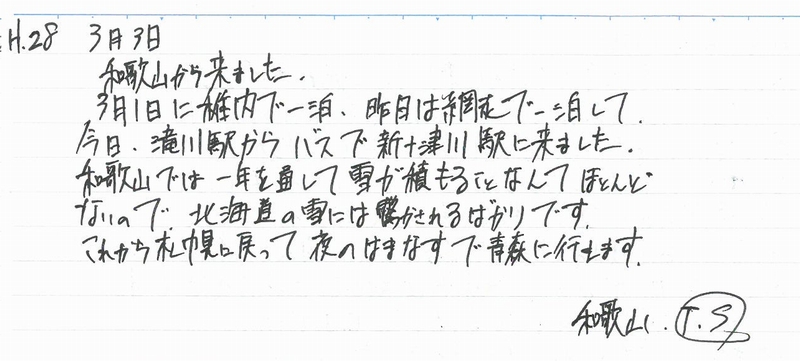 H.28 3月3日
和歌山から来ました.
3月1日に稚内で一泊、昨日は網走で一泊して、
今日、滝川駅からバスで新十津川駅に来ました.
和歌山では一年を通して雪が積もることなんてほとんど
ないので、北海道の雪には驚かされるばかりです.
これから札幌に戻って夜のはまなすで青森に行きます.
和歌山. T.S